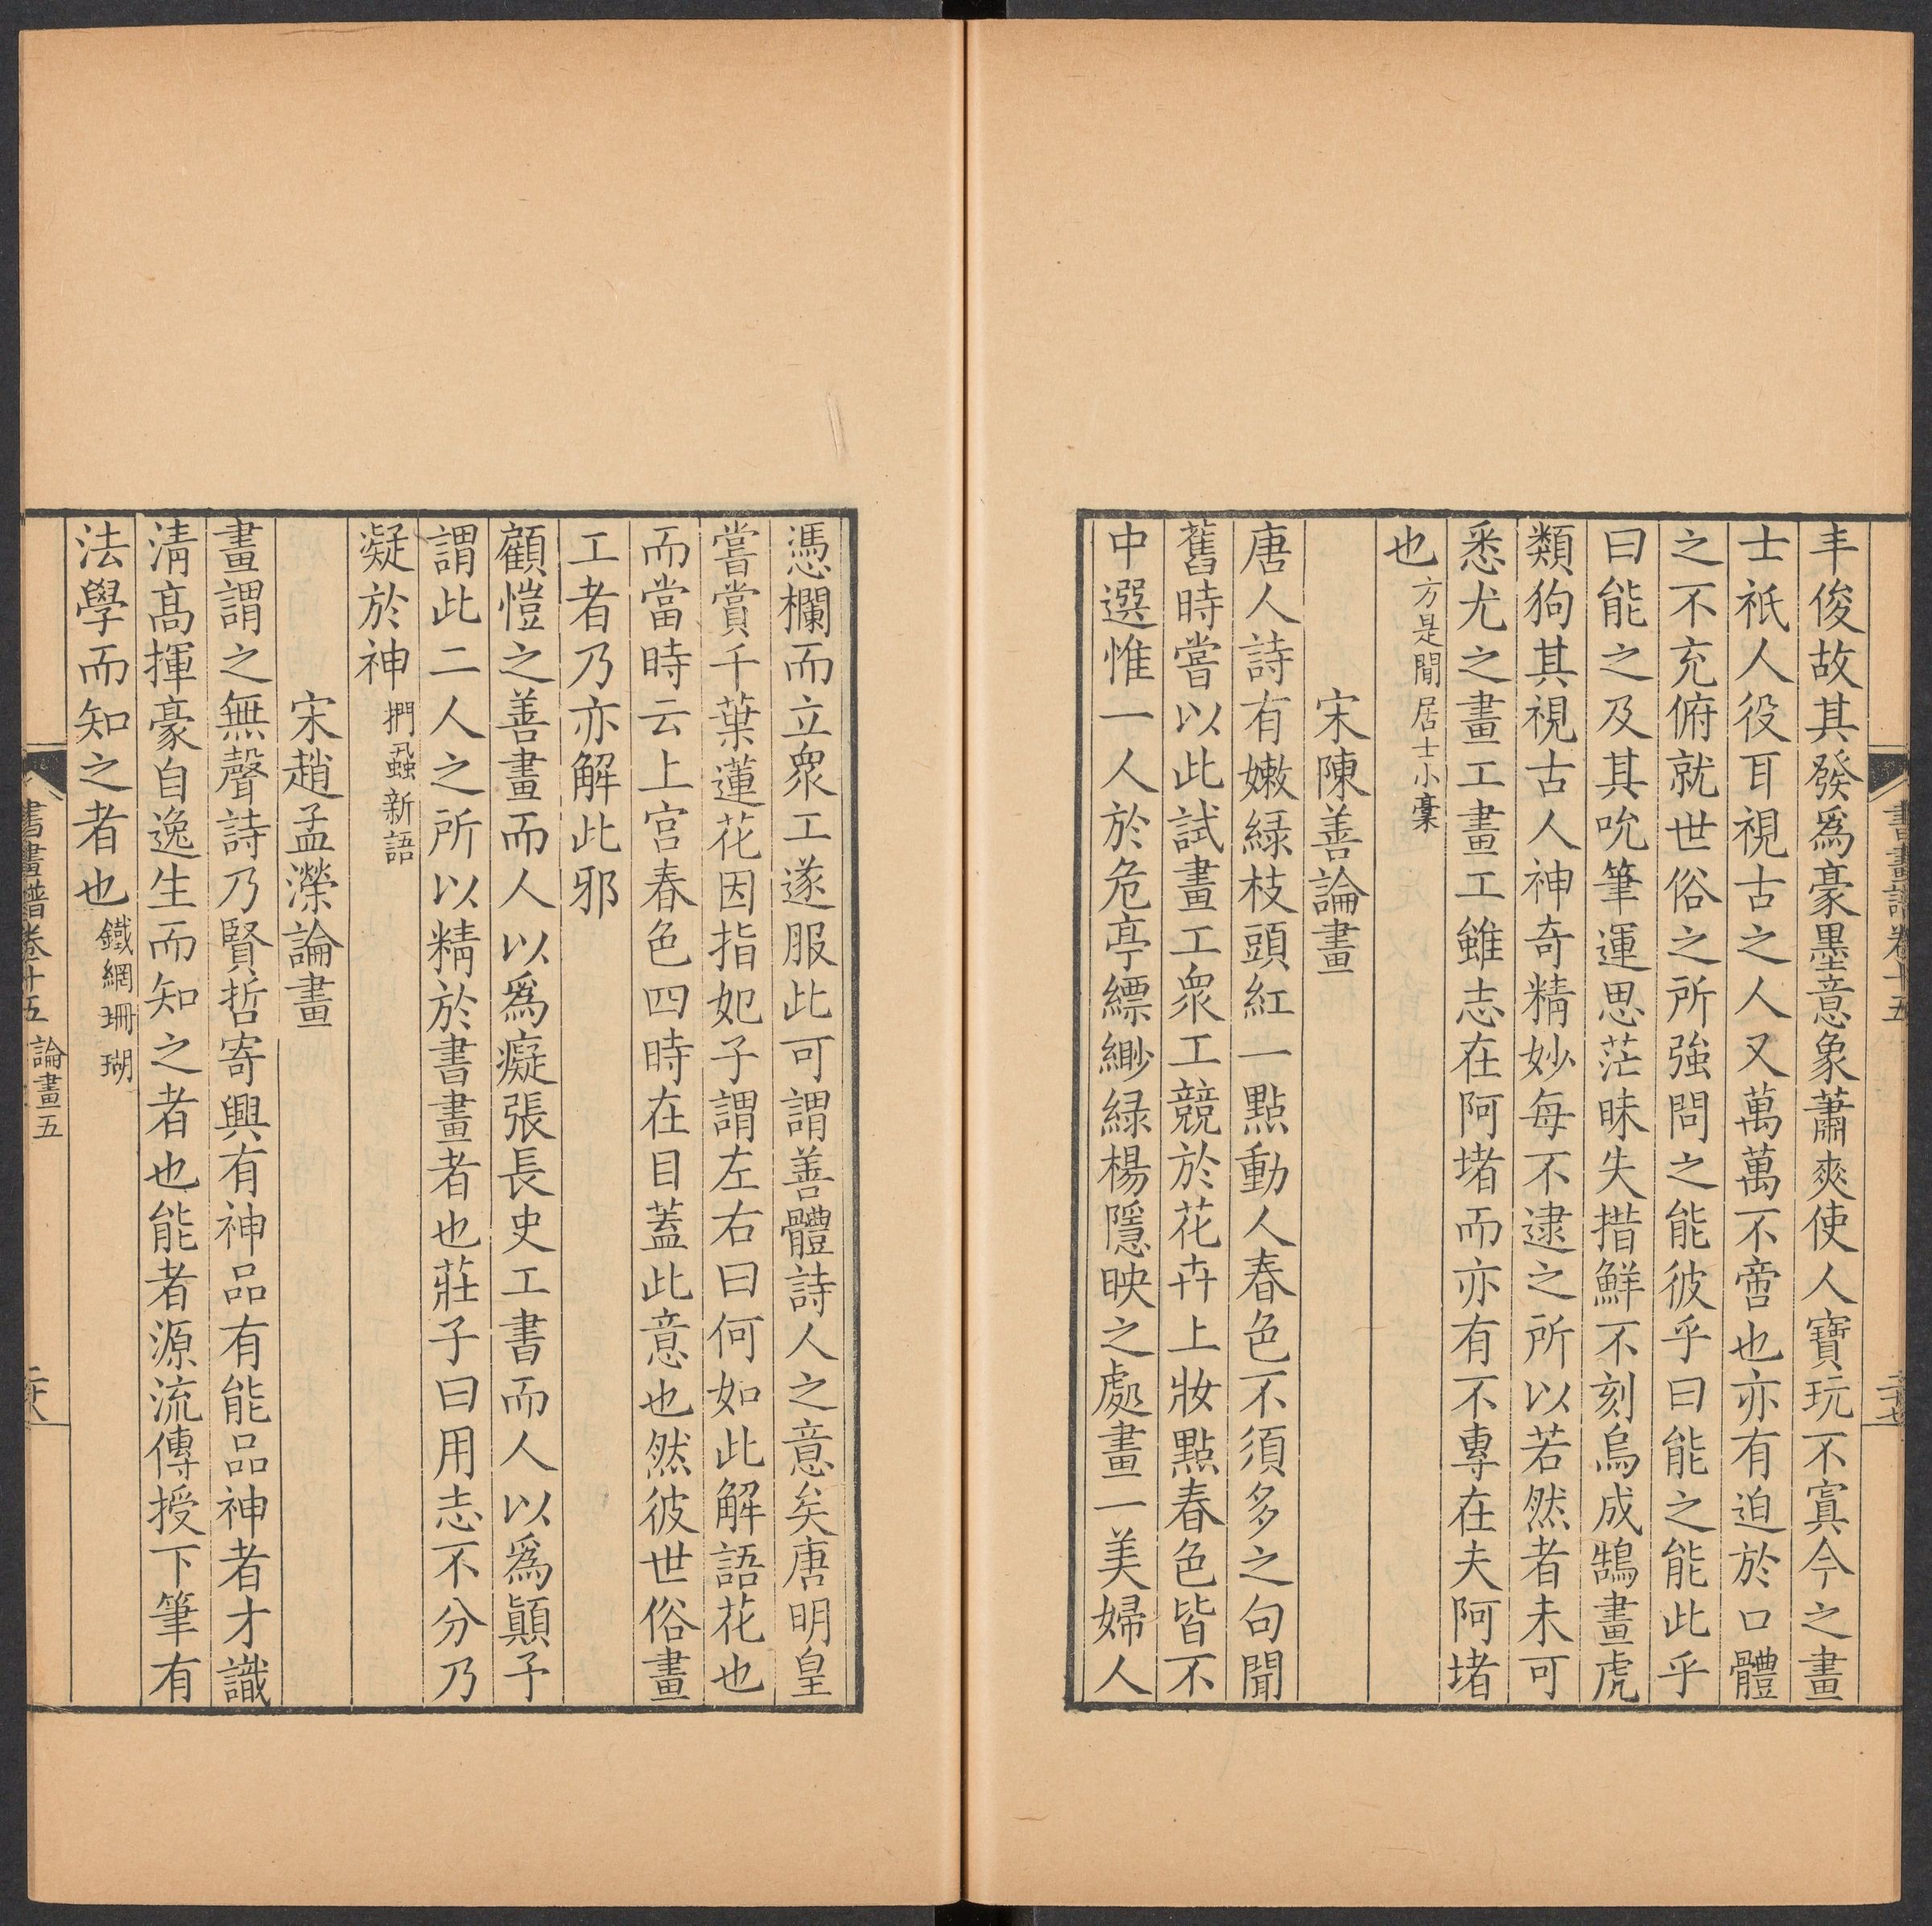 書畫譜卷十五
二十七
丰俊故其發爲豪墨意象蕭爽使人寶玩不寘今之畫
士祇人役耳視古之人又萬萬不啻也亦有迫於口體
之不充俯就世俗之所強問之能彼乎曰能之能此乎
曰能之及其吮筆運思茫昧失措鮮不刻烏成鵠畫虎
類狗其視古人神奇精妙每不逮之所以若然者未可
悉尤之畫工畫工雖志在阿堵而亦有不專在夫阿堵
也方是閒居士小稾
宋陳善論畫
唐人詩有嫩緑枝頭紅一點動人春色不須多之句聞
舊時嘗以此試畫工衆工競於花卉上妝點春色皆不
中選惟一人於危亭縹緲緑楊隱映之處畫一美婦人
憑欄而立衆工遂服此可謂善體詩人之意矣唐明皇
嘗賞千葉蓮花因指妃子謂左右曰何如此解語花也
而當時云上宮春色四時在目蓋此意也然彼世俗畫
工者乃亦解此邪
顧愷之善畫而人以爲癡張長史工書而人以爲顚予
謂此二人之所以精於書畫者也莊子曰用志不分乃
凝於神捫蝨新語
宋趙孟濚論畫
畫謂之無聲詩乃賢哲寄興有神品有能品神者才識
淸髙揮豪自逸生而知之者也能者源流傳授下筆有
法學而知之者也鐵網珊瑚
書畫譜卷十五 論畫五
二十八